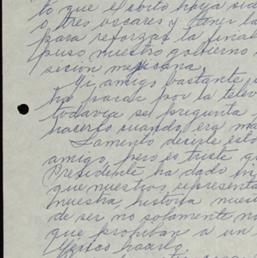 to que el sólo haya sid
o tres oscares y
para reforzar la
puso nuestro gobierno
sición mexicana.
Mi amigo bastante
ha pasar por la telev
todavía se pregunta
hacerlo cuando era ma
Lamento decirle esto
amigo, pero es triste q
Presidente ha dado
que nuestros representa
nuestra historia music
de ser no solamente no
que prohiban a un
México hacerlo.